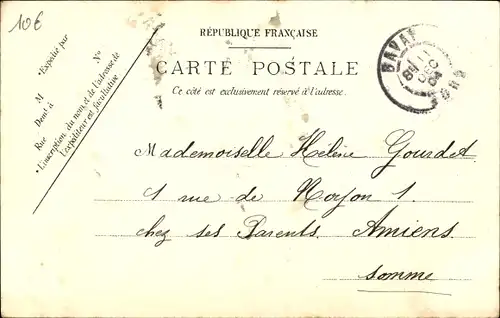 10€
RÉPUBLIQUE FRANÇAISE
CARTE POSTALE
Ce côté est exclusivement réservé à l'adresse.
*Expédié par
M
Demt à
Rue N°
*L'inscription du nom et de l'adresse de
l'expéditeur est facultative
BAVAY
DEC
NORD
Mademoiselle Hélène Gourdet.
1 rue de Noyon 1.
chez ses Parents. Amiens
Somme